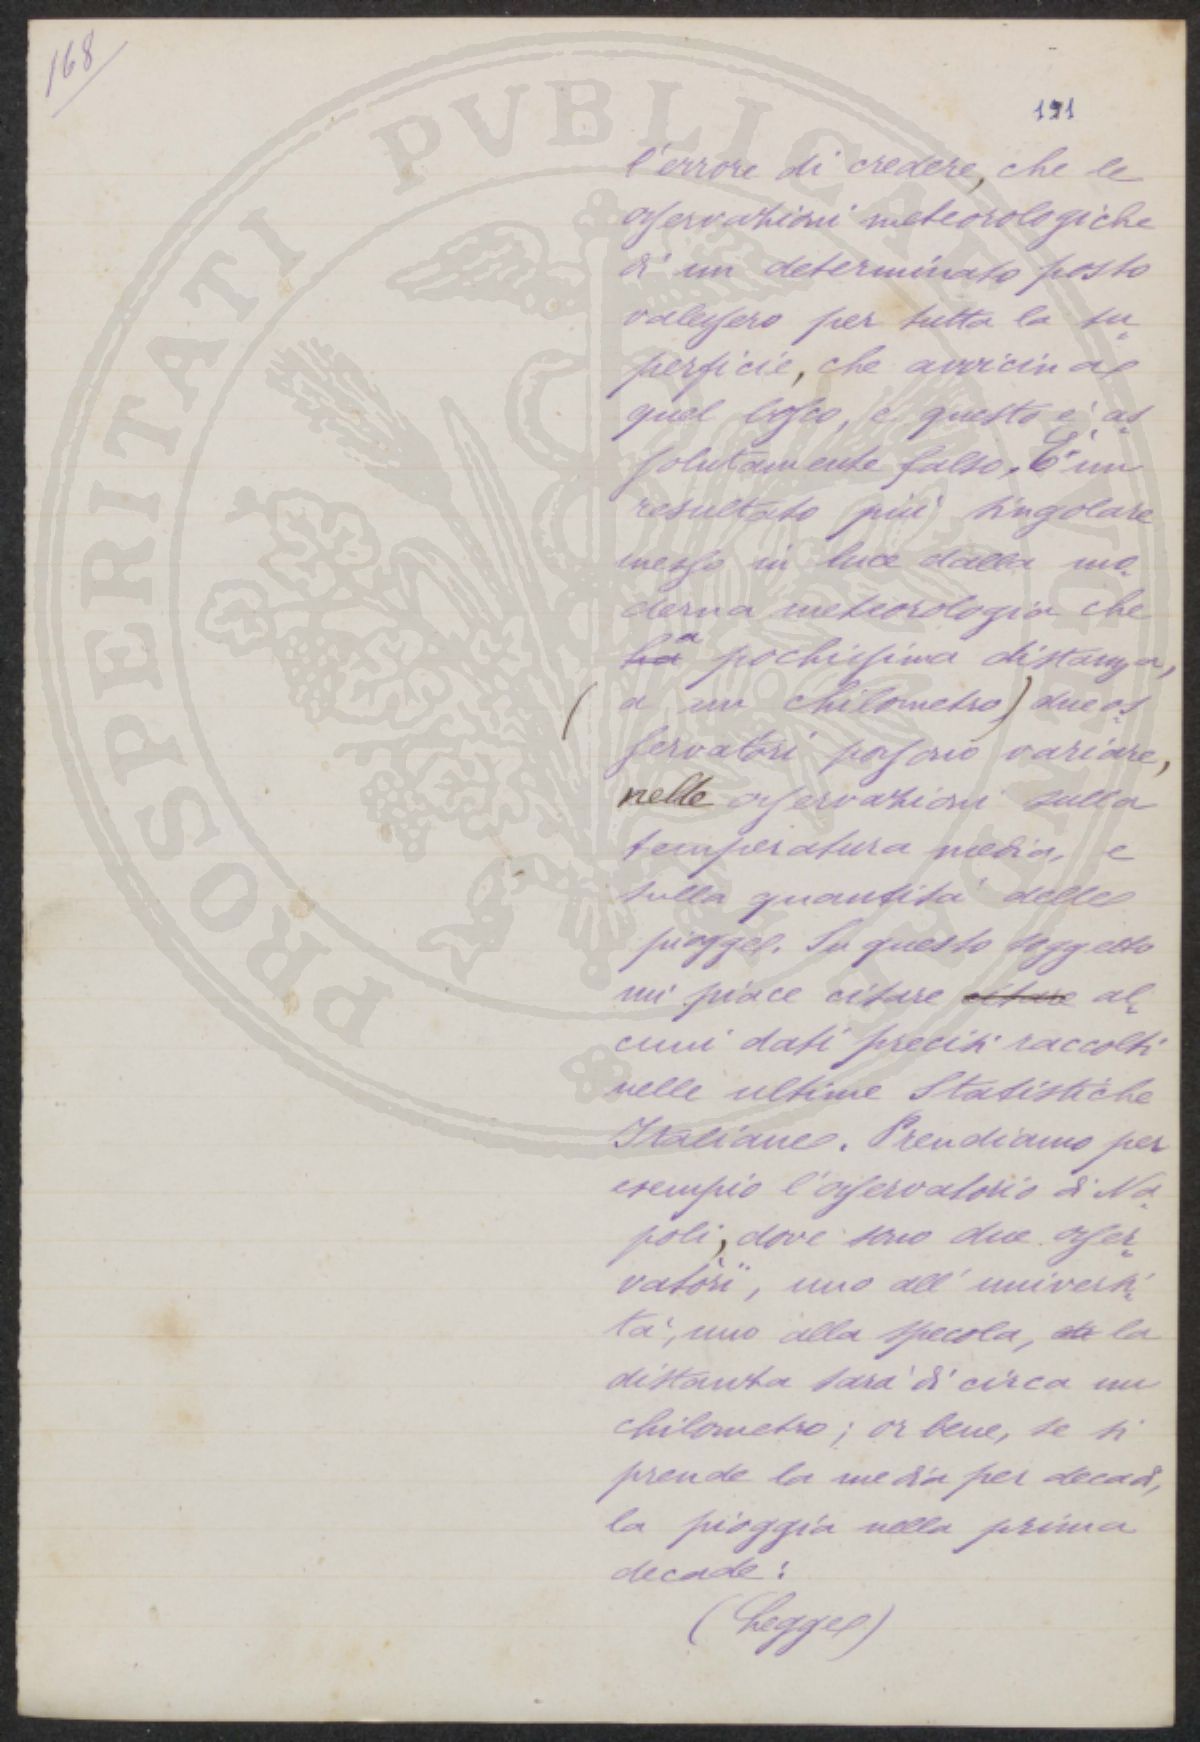 168
191
l'errore di credere, che le
osservazioni meteorologiche
di un determinato posto
valessero per tutta la su=
perficie, che avvicina
quel bosco, e questo è as=
solutamente falso. E' un
resultato più singolare
messo in luce dalla mo=
derna meteorologia che
ha a pochissima distanza,
(a un chilometro) due os=
servatori possono variare,
nelle osservazioni sulla
temperatura media, e
sulla quantità delle
piogge. Su questo soggetto
mi piace citare citare al=
cuni dati precisi raccolti
nelle ultime Statistiche
Italiane. Prendiamo per
esempio l'osservatorio di Na=
poli, dove sono due osser=
vatorî, uno all'universi=
tà, uno alla specola, la
distanza sarà di circa un
chilometro; or bene, se si
prende la media per decadi,
la pioggia nella prima
decade:
(Legge)
PROSPERITATI PVBLICAE AVGENDAE